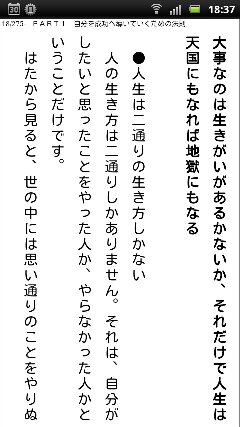 18:37
18/275 PARTⅠ 自分を成功へ導いていくための法則
大事なのは生きがいがあるかないか、それだけで人生は
天国にもなれば地獄にもなる
●人生は二通りの生き方しかない
人の生き方は二通りしかありません。それは、自分が
したいと思ったことをやった人か、やらなかった人かと
いうことだけです。
はたから見ると、世の中には思い通りのことをやりぬ